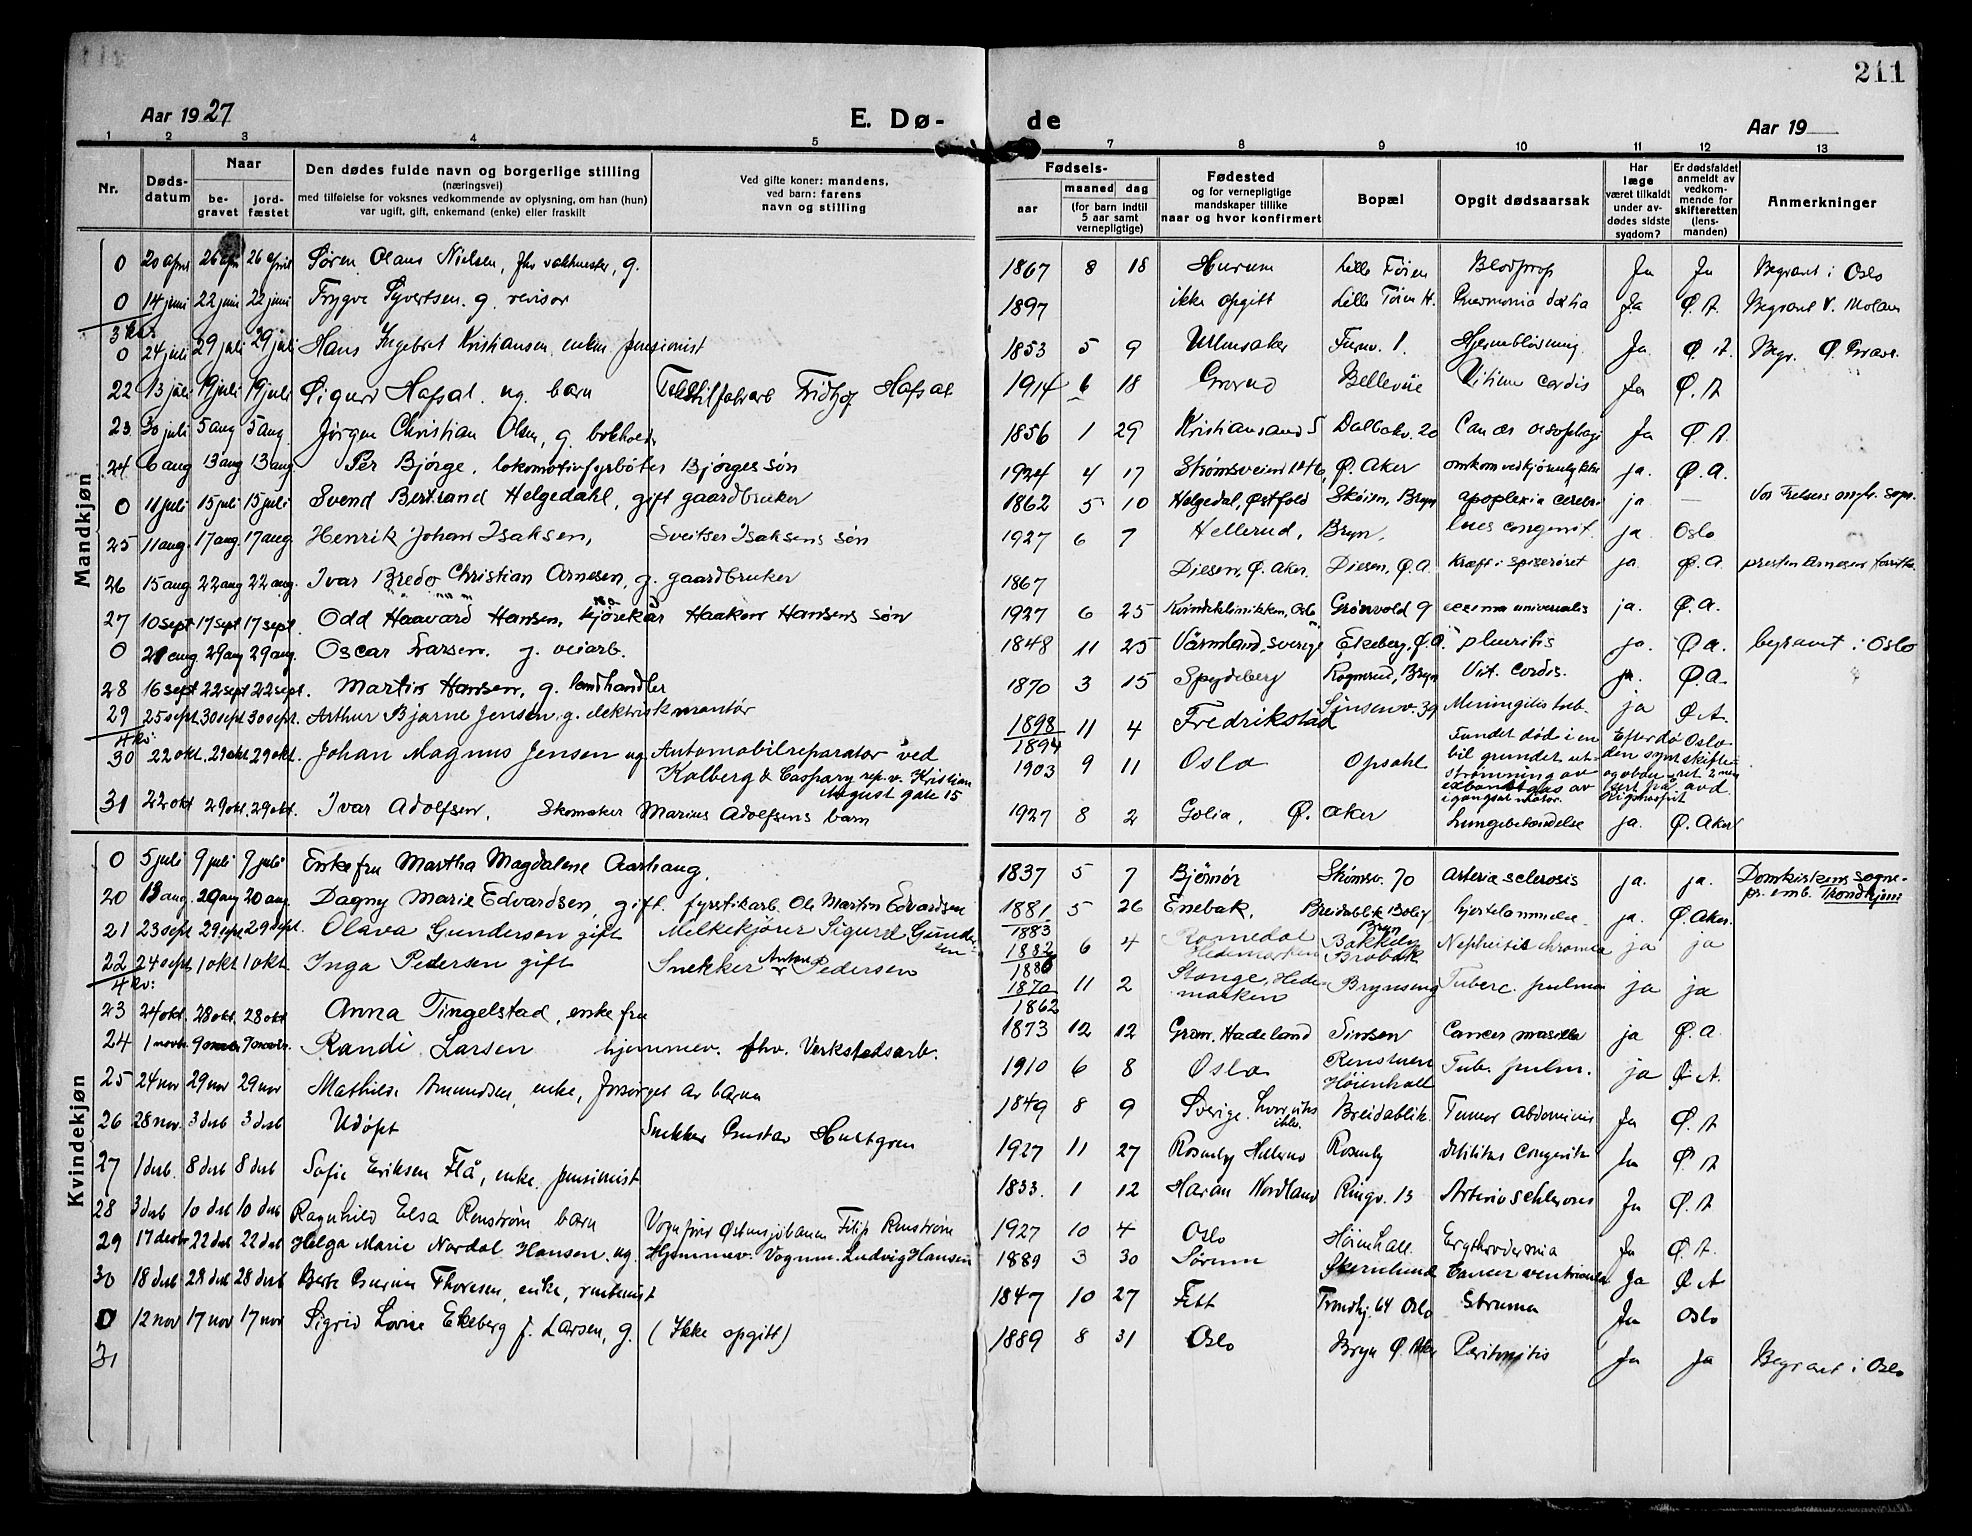 211
Aar 1927 E. Dø- de Aar 19
1 2 3 4 5 7 8 9 10 11 12 13
Nr. Døds-datum Naar be-gravet jord-fæstet Den dødes fulde navn og borgerlige stilling (næringsvei) med tilføielse for voksnes vedkommende av oplysning, om han (hun) var ugift, gift, enkemand (enke) eller fraskilt Ved gifte koner: mandens, ved barn: farens navn og stilling Fødsels- aar maaned dag (for barn indtil 5 aar samt vernepligtige) Fødested og for vernepligtige mandskaper tillike naar og hvor konfirmert Bopæl Opgit dødsaarsak Har læge været tilkaldt under av-dødes sidste sygdom? Er dødsfaldet anmeldt av vedkom-mende for skifteretten (lens-manden) Anmerkninger
Mandkjøn
0 20 april 26 apr 26 april Søren Olaus Nielsen, fhv vaktmester, g. 1867 8 18 Hurum Lille Tøien Blodprop Ja Ja Begravet i Oslo
0 14 juni 22 juni 22 juni Trygve Syvertsen. g. revisor 1897 ikke opgitt Lille Tøien H. Pneumonia Ja Ø. A. Begravet V.
3 kv:
0 24 juli 29 juli 29 juli Hans Ingebret Kristiansen, enkem. pensionist 1853 5 9 Ullensaker Furuv. 1. Hjerneblødning Ja Ø. A. Begr. Ø. Gravl.
22 13 juli 19 juli 19 juli Sigurd Hafsal. ug. barn Tekstilfabrarb Fridtjof Hafsal 1914 6 18 Grorud Bellevue Vitium cordis Ja Ø. A.
23 30 juli 5 aug 5 aug. Jørgen Christian Olsen, g. bokholder 1856 1 29 Kristiansand S Dalbakv. 20 Cancer oesophagi Ja Ø A.
24 6 aug 13 aug 13 aug Per Bjørge, lokomotivfyrbøter Bjørges søn 1924 4 17 Strømsveien Ø. Aker omkom ved kjøreulykke ja. Ø. A.
0 11 juli 15 juli 15 juli Svend Bertrand Helgedahl, gift gaardbruker 1862 5 10 Helgedal, Østfold Skøien, Bryn apoplexia cerebri ja — Vor Frelsers angl. sogn.
25 11 aug. 17 aug 17 aug. Henrik Johan Isaksen, Sveitser Isaksens søn 1927 6 7 Hellerud, Bryn, lues congenit. ja. Oslo
26 15 aug 22 aug 22 aug. Ivar Bredo Christian Arnesen, g. gaardbruker 1867 Diesen, Ø. Aker. Diesen, Ø. A. Kræft i spiserøret ja. Ø. A. presten Arnesen forrettet
27 10 sept 17 sept 17 sept. Odd Haavard Hansen, kjørekar Haakon Hansens søn 1927 6 25 Kvindeklinikken, Oslo Grønvold 9 eczema universalis ja. Ø. A.
0 21 aug 29 aug 29 aug. Oscar Larsen. g. veiarb. 1848 11 25 Värmland, Sverige Ekeberg, Ø. A. pleuritis ja. Ø a. begravet i Oslo
28 16 sept 22 sept 22 sept. Martin Hansen, g. landhandler 1870 3 15 Spydeberg Rognerud, Bryn Vit. Cordis. ja. Ø. A.
29 25 sept 30 sept 30 sept. Arthur Bjarne Jensen, g. elektrisk montør 1898/1894 11 4 Fredrikstad Sinsenv. 39 Meningitis tub. ja Ø A.
4 kv:
30 22 okt. 29 okt. 29 okt. Johan Magnus Jensen ug. Automobilreparatør ved Kolberg & Caspary rep. v. Kristian August gate 15 1903 9 11 Oslo Opsahl Fundet død i en bil grundet utstrømning av exbandtgas av igangsat motor. Efter dø den synt og obdusert paa Rigshospit Oslo skifteret 2nen avd
31 22 okt 29 okt. 29 okt. Ivar Adolfsen, Skomaker Marius Adolfsens barn 1927 8 2 Golia, Ø. Aker Lungebetændelse ja. Ø. Aker
Kvindekjøn
0 5 juli 9 juli 9 juli Enkefru Martha Magdalene Aarhaug. 1837 5 7 Bjørnør Strømsv. 70 Arteria sclerosis ja. ja. Domkirkens sogne-pr. emb. Trondhjem
20 13 aug. 20 aug 20 aug. Dagny Marie Edvardsen, gift. fyrstikarb. Ole Martin Edvardsen 1881/1883 5 26 Enebak, Breidablik Bolig Bryn hjertelammelse ja. Ø. Aker.
21 23 sept 29 sept 29 sept. Olava Gundersen gift Melkekjører Sigurd Gundersen 1882/1886 6 4 Romedal Hedemarken Bakkely Brobæk Nephritis chronica ja ja
22 24 sept. 1 okt 1 okt. Inga Pedersen gift Snekker Anton Pedersen 1870/1862 11 2 Stange, Hedemarken Brynseng Tuberc. pulmon ja ja
4 kv:
23 24 okt. 28 okt. 28 okt Anna Tingelstad, enkefru 1873 12 12 Gran, Hadeland Sinsen Cancer mamilla ja Ø. A.
24 1 novbr. 9 novbr 9 novbr. Randi Larsen hjemmev. fhv. Verkstedsarb. 1910 6 8 Oslo Høienhall Tub. pulm. ja Ø. A.
25 24 nov 29 nov 29 nov Mathilde Amundsen, enke, forsørget av barna 1849 8 9 Sverige, hvor vites ikke. Breidablik. Tumor Abdominis Ja Ø. A
26 28 nov. 3 desb 3 desb Udøpt Snekker Gustav Hultgren 1927 11 27 Rosenly Hellerud Rosenly debilitas congenita Ja Ø. A
27 1 desb. 8 desb 8 desb Sofie Eriksen Flå, enke, pensionist 1833. 1 12 Haran Nordland Ringv. 13 Arterio schlerosis Ja Ø. A
28 3 desb 10 desb 10 desb Ragnhild Elsa Renstrøm barn Vognfører Østensjøbanen Filip Renstrøm 1927 10 4 Oslo Høienhall. Erythrodermia Ja Ø. A.
29 17 desbr 22 desb 22 desb Helga Marie Nordal Hansen. ug. Hjemmev. Vognm. Ludvig Hansen 1889 3 30 Sørum Cancer ventriculi Ja Ø. A
30 18 desb 28 desb 28 desb Berte Gurine Thoresen, enke, rentenist 1847 10 27 Fett Trondhj. 64 Oslo Struma Ja Oslo
0 12 nov 17 nov 17 nov Sigrid Lovise Ekeberg f. Larsen, g. (Ikke opgitt) 1889 8 31 Oslo Bryn Ø. Aker Peritonitis Ja Ja Begravet i Oslo
31